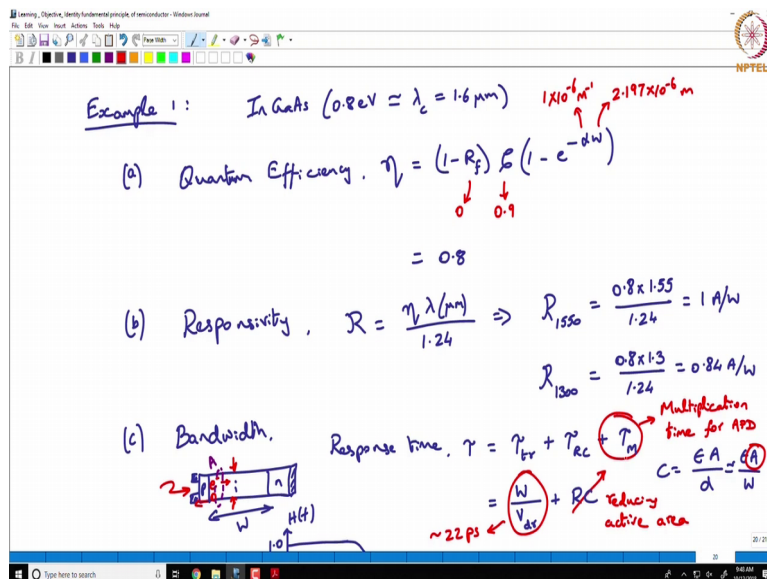 Learning _ Objective_ Identity fundamental principle_ of_semiconductor - Windows Journal
File Edit View Insert Actions Tools Help
Page Width
B I
NPTEL
Example 1: InGaAs (0.8eV ≃ λc = 1.6 μm)
1×10⁻⁶ m⁻¹ 2.197×10⁻⁶ m
(a) Quantum Efficiency, η = (1-Rf) ξ (1 - e^-αW)
0 0.9
= 0.8
(b) Responsivity, R = η λ(μm) / 1.24 ⇒ R1550 = 0.8 × 1.55 / 1.24 = 1 A/W
R1300 = 0.8 × 1.3 / 1.24 = 0.84 A/W
(c) Bandwidth, Response time, τ = τtr + τRC + τM
Multiplication time for APD
C = ϵA / d = ϵA / W
= W / Vdr + RC reducing active area
~22 ps
A
p i n
W
H(f)
1.0
20 / 21
20
Type here to search
9:40 AM